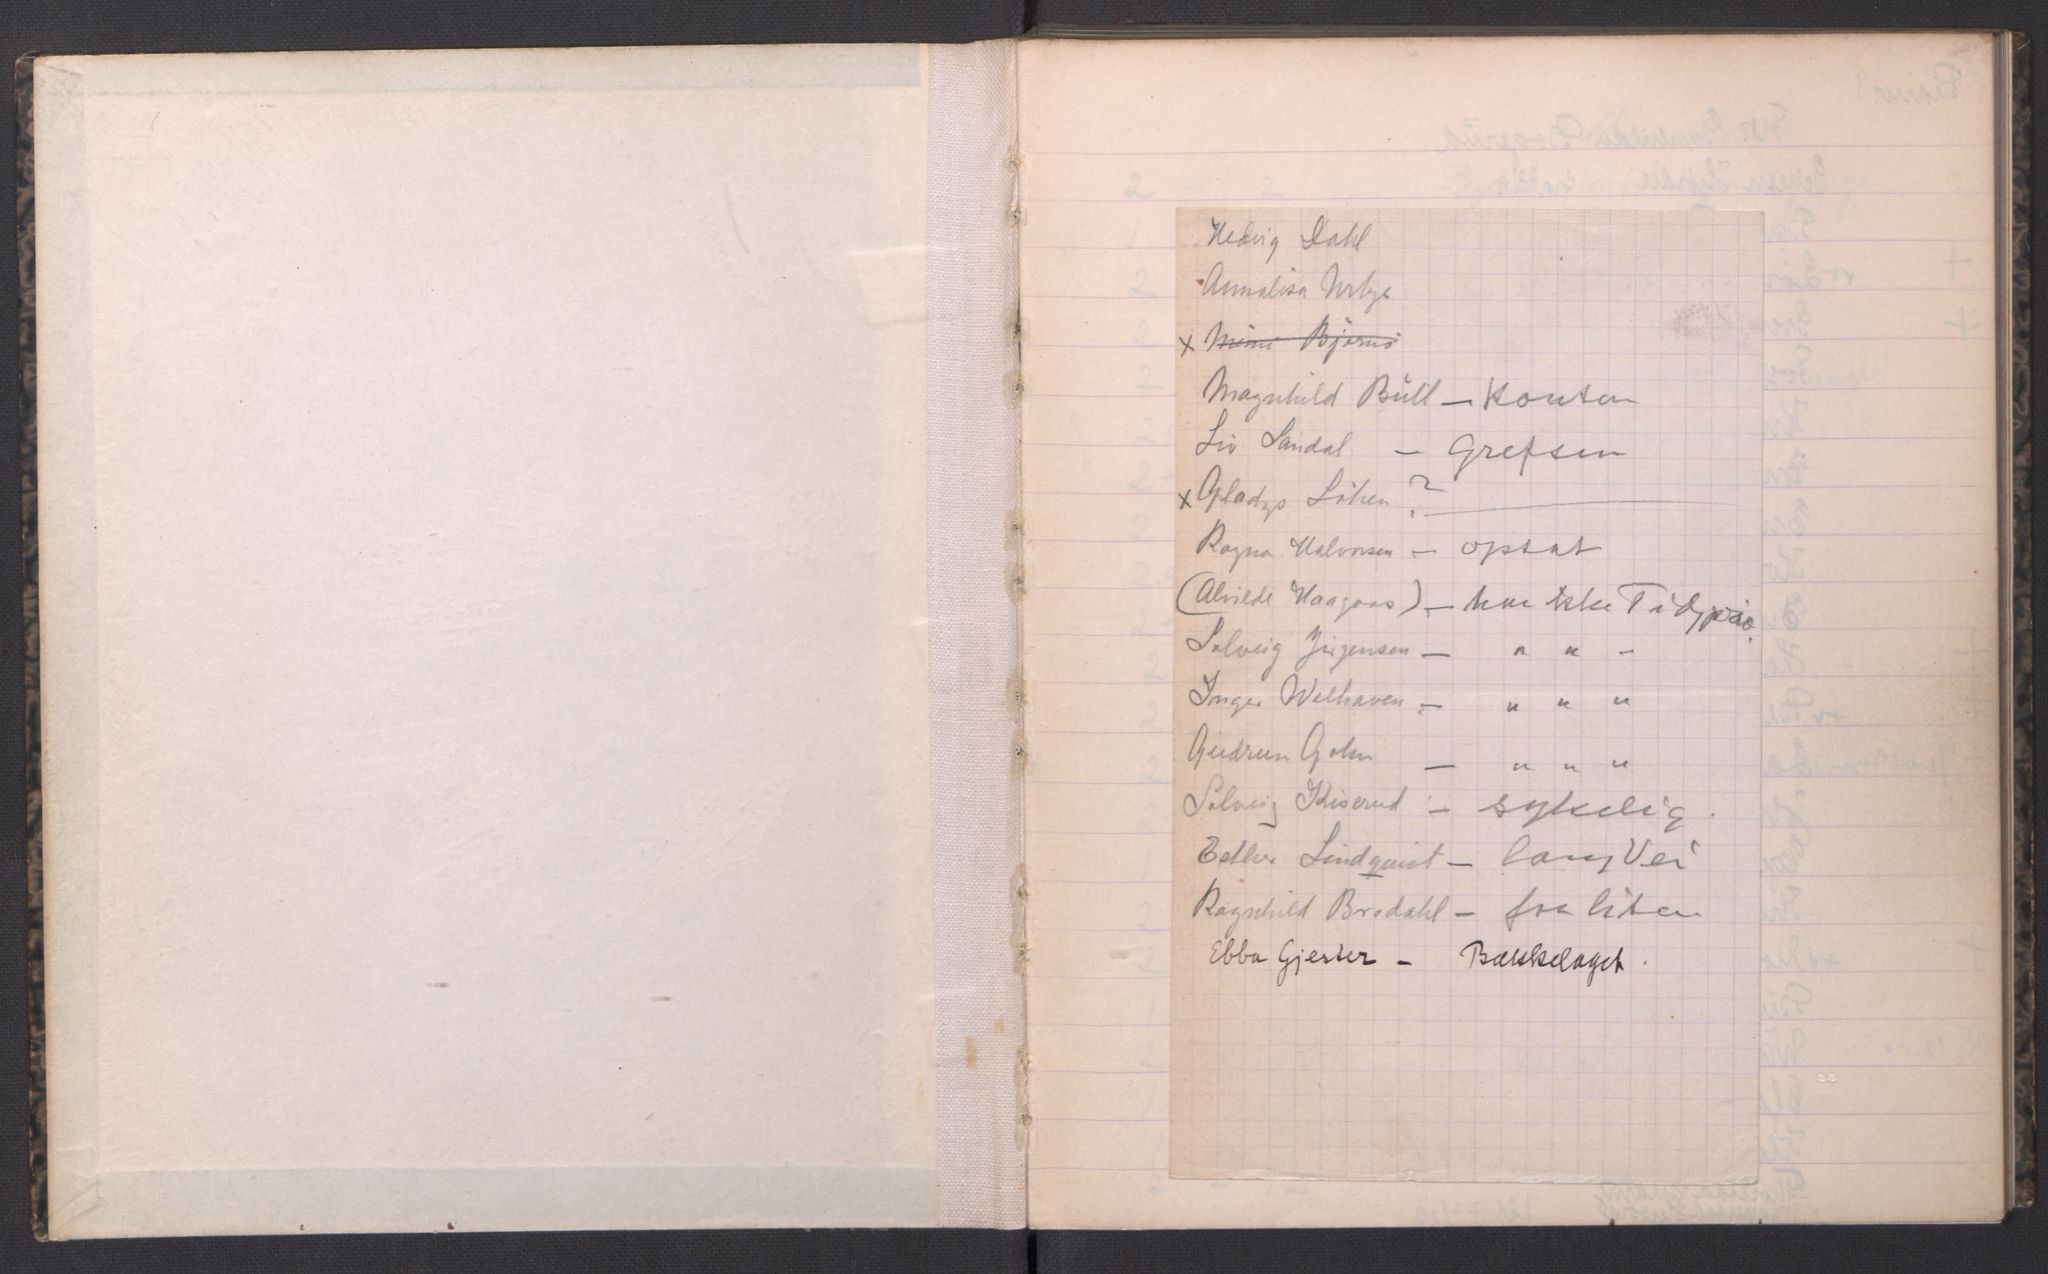 Hedvig Dahl
Annalisa
x Mimi Bjørnø
Magnhild Büll — Kontor
Liv Sandal — Grefsen
x Gladys Löken ? —
Ragna Halvorsen — opsat
(Alvilde Haagaas) — har ikke Tidspræo.
Solveig Jörgensen — " " "
Inger Welhaven — " " "
Gudrun Gohn — " " "
Solveig Kiserud — sykelig.
Esther Lindquist — lang Vei
Ragnhild Brodahl — for liten
Ebba Gjester — Bækkelaget.